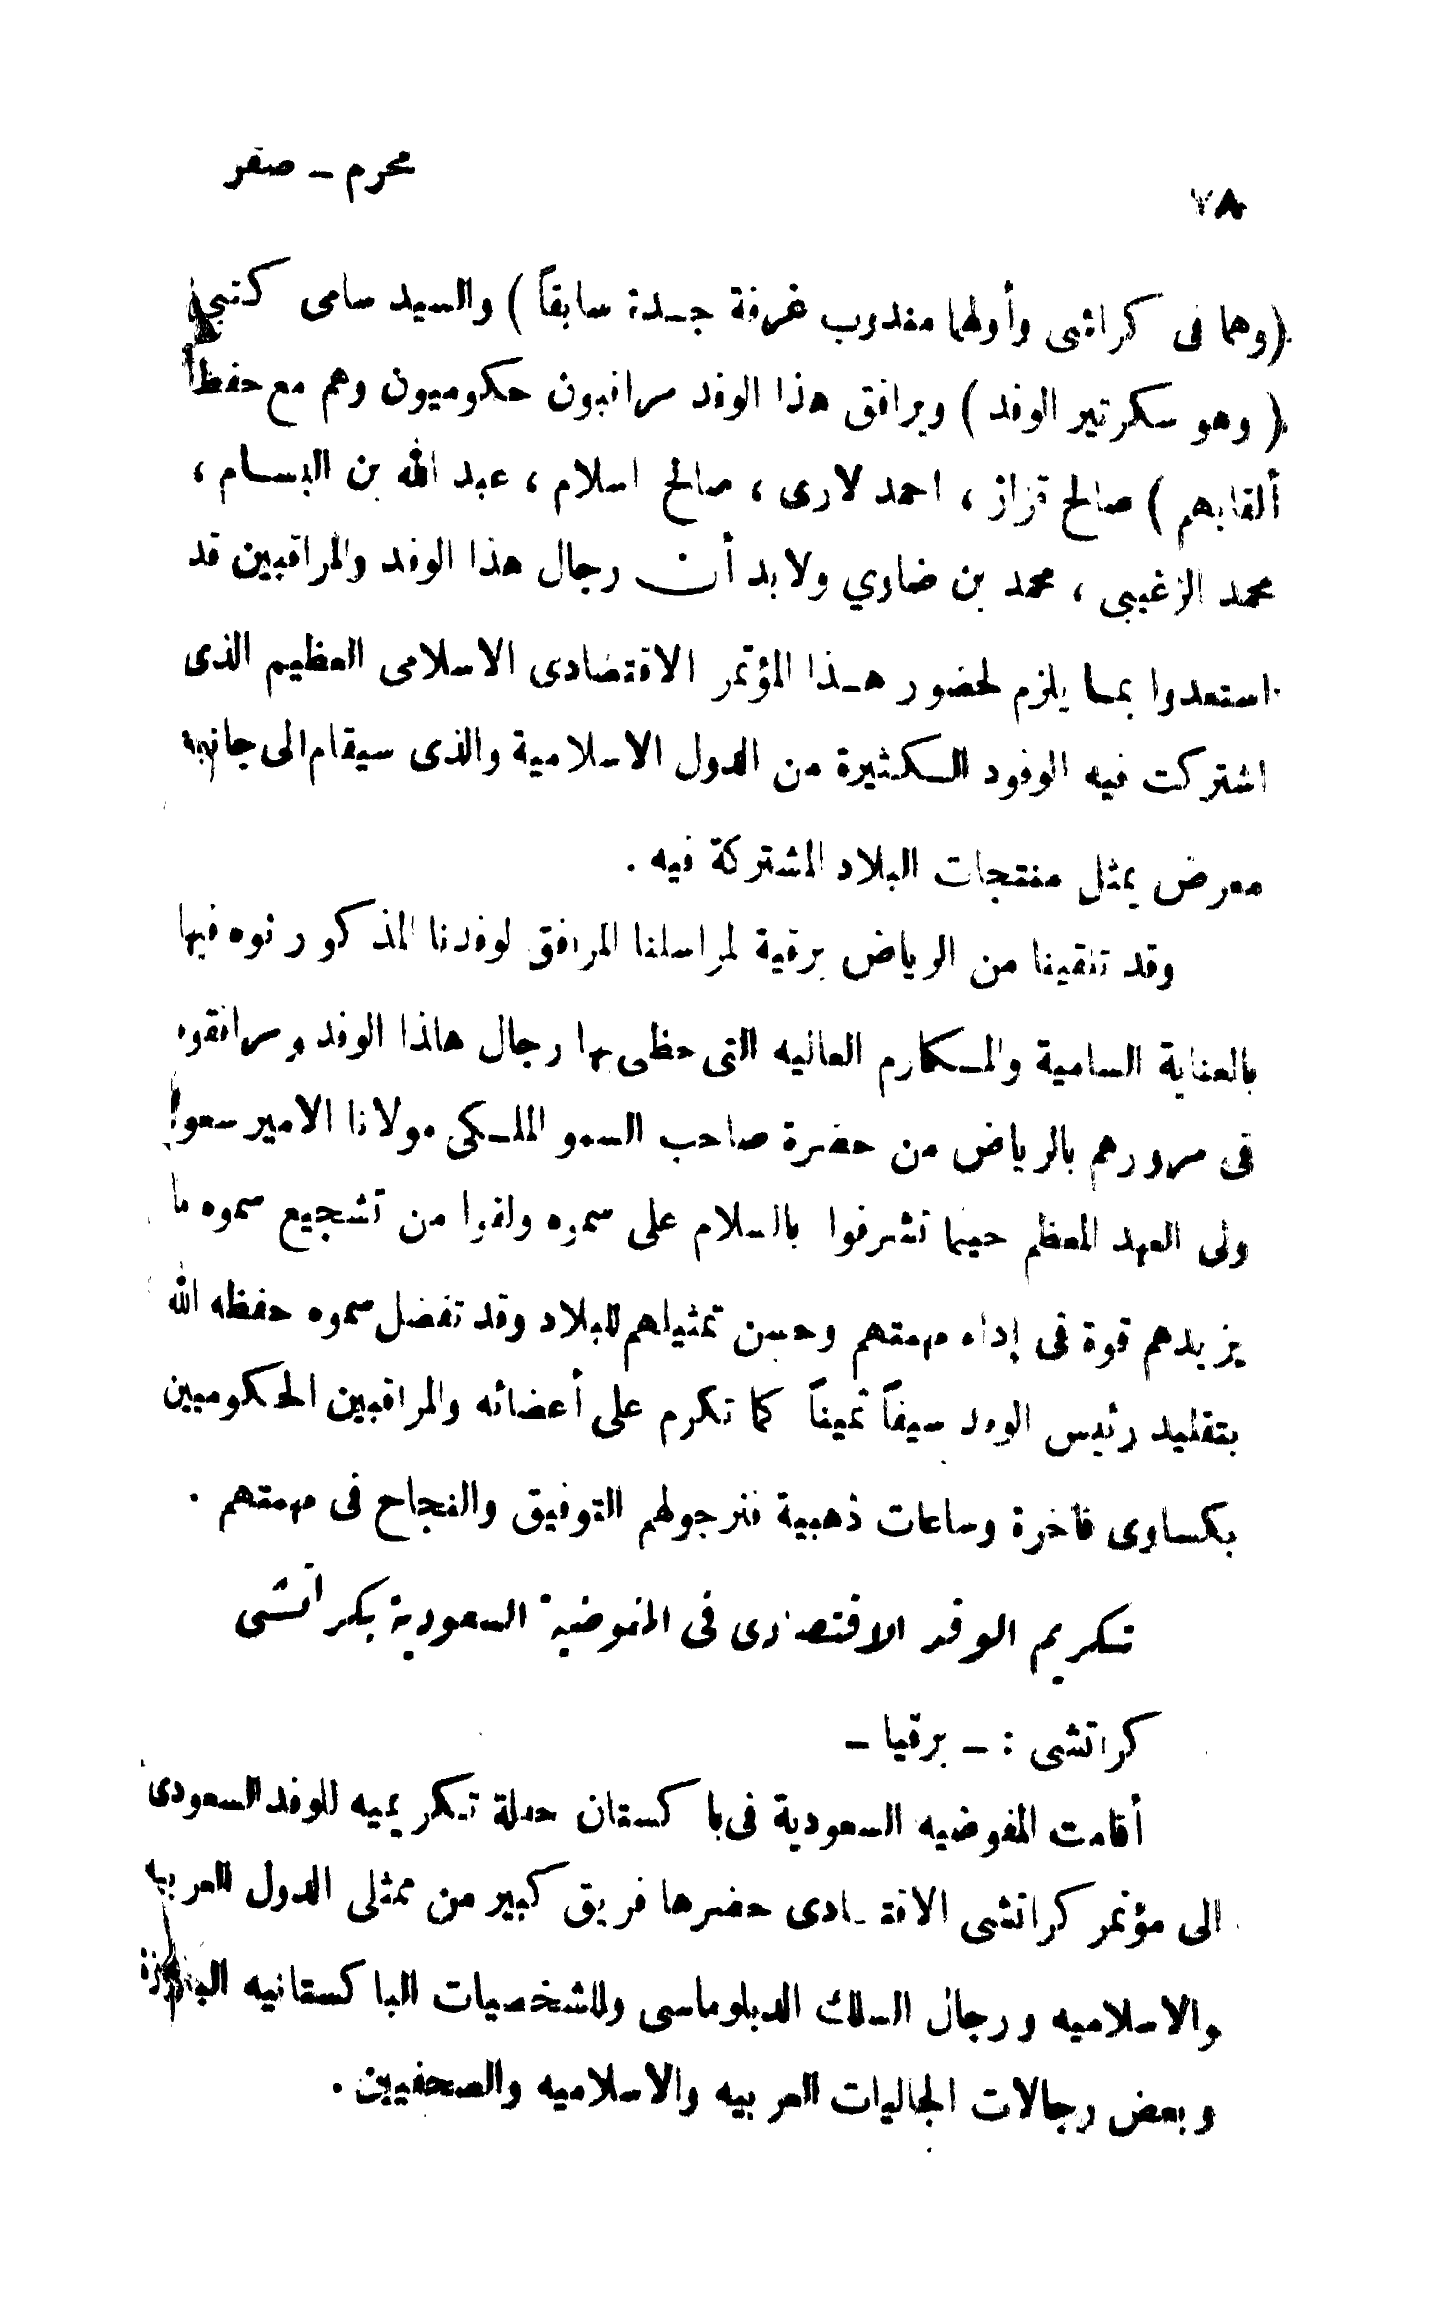 محرم ـ صفر
٧٨
(وهما فى كراتشى وأولهما مندوب غرفة جـدة سابقاً) والسيد سامى كتبى
(وهو سكرتير الوفد) ويرافق هذا الوفد مراقبون حكوميون وهم مع حفظ
ألقابهم) صالح قزاز ، احمد لارى ، صالح اسلام ، عبد الله بن البسـام ،
محمد الزغيبى ، محمد بن ضاوي ولابد أن رجال هذا الوفد والمراقبين قد
استعدوا بمـا يلزم لحضور هـذا المؤتمر الاقتصادى الاسلامى العظيم الذى
اشتركت فيه الوفود الـكثيرة من الدول الاسلامية والذى سيقام الى جانبه
معرض يمثل منتجات البلاد المشتركة فيه .
وقد تلقينا من الرياض برقية لمراسلنا المرافق لوفدنا المذكور نوه فيها
بالعناية السامية والمـكارم العاليه التى حظى بها رجال هاذا الوفد ومرافقوه
فى مرورهم بالرياض من حضرة صاحب السمو الملـكى مولانا الامير سعود
ولى العهد المعظم حينما تشرفوا بالسلام على سموه ولقوا من تشجيع سموه ما
يزيدهم قوة فى إداء مهمتهم وحسن تمثيلهم للبلاد وقد تفضل سموه حفظه الله
بتقليد رئيس الوفد سيفاً ثميناً كما تكرم على أعضائه والمراقبين الحكوميين
بكساوى فاخرة وساعات ذهبية فنرجو لهم التوفيق والنجاح فى مهمتهم .
تـكريم الوفد الاقتصادى فى المفوضية السعودية بكراتشى
كراتشى : ـ برقيا ـ
أقامت المفوضيه السعودية فى باكستان حفلة تـكريميه للوفد السعودى
الى مؤتمر كراتشى الاقتصادى حضرها فريق كبير من ممثلى الدول العربيه
والاسلاميه ورجال السلك الدبلوماسى وللشخصيات الباكستانيه البارزة
وبعض رجالات الجاليات العربيه والاسلاميه والصحفيين .